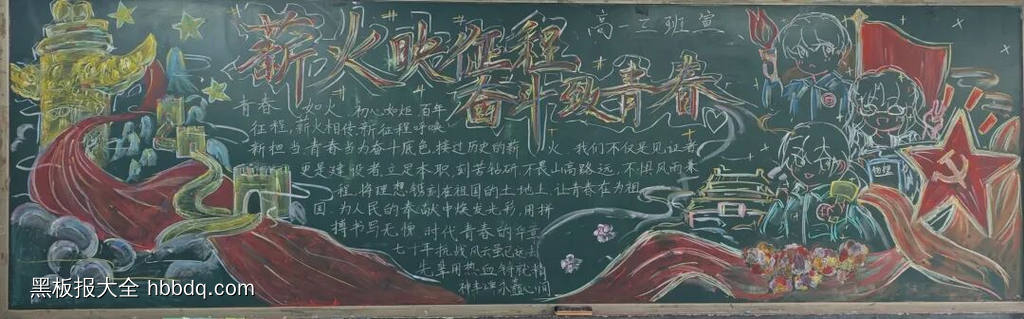 薪火映征程
奋斗致青春
高一三班宣
青春 如火,初心如炬,百年
征程,薪火相传,新征程呼唤
新担当,青春当为奋斗底色,接过历史的薪 火,我们不仅是见证者
更是建设者,立足本职,刻苦钻研,不畏山高路远,不惧风雨兼
程,将理想镌刻在祖国的土地上,让青春在为祖
国,为人民的奉献中焕发光彩,用拼
搏书写无愧 时代 青春的
七十年抗战,风云虽已逝去
先辈用热血铸就精
神丰碑永 心间
物理
黑板报大全 hbbdq.com